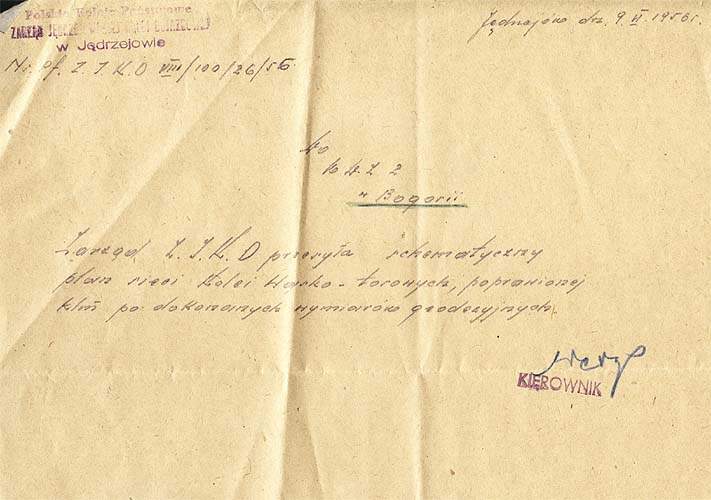 Polskie Koleje Państwowe
w Jędrzejowie
Jędrzejów dn. 9 VI. 1956 r.
Nr. Pf. Z. J. K. D VIII/100/26/56.
Do
2
w Bogorii
Zarząd Z. J. K. D przesyła schematyczny
plan sieci Kolei Wąsko-torowych, poprawionej
po dokonanych wymiarów geodezyjnych.
KIEROWNIK